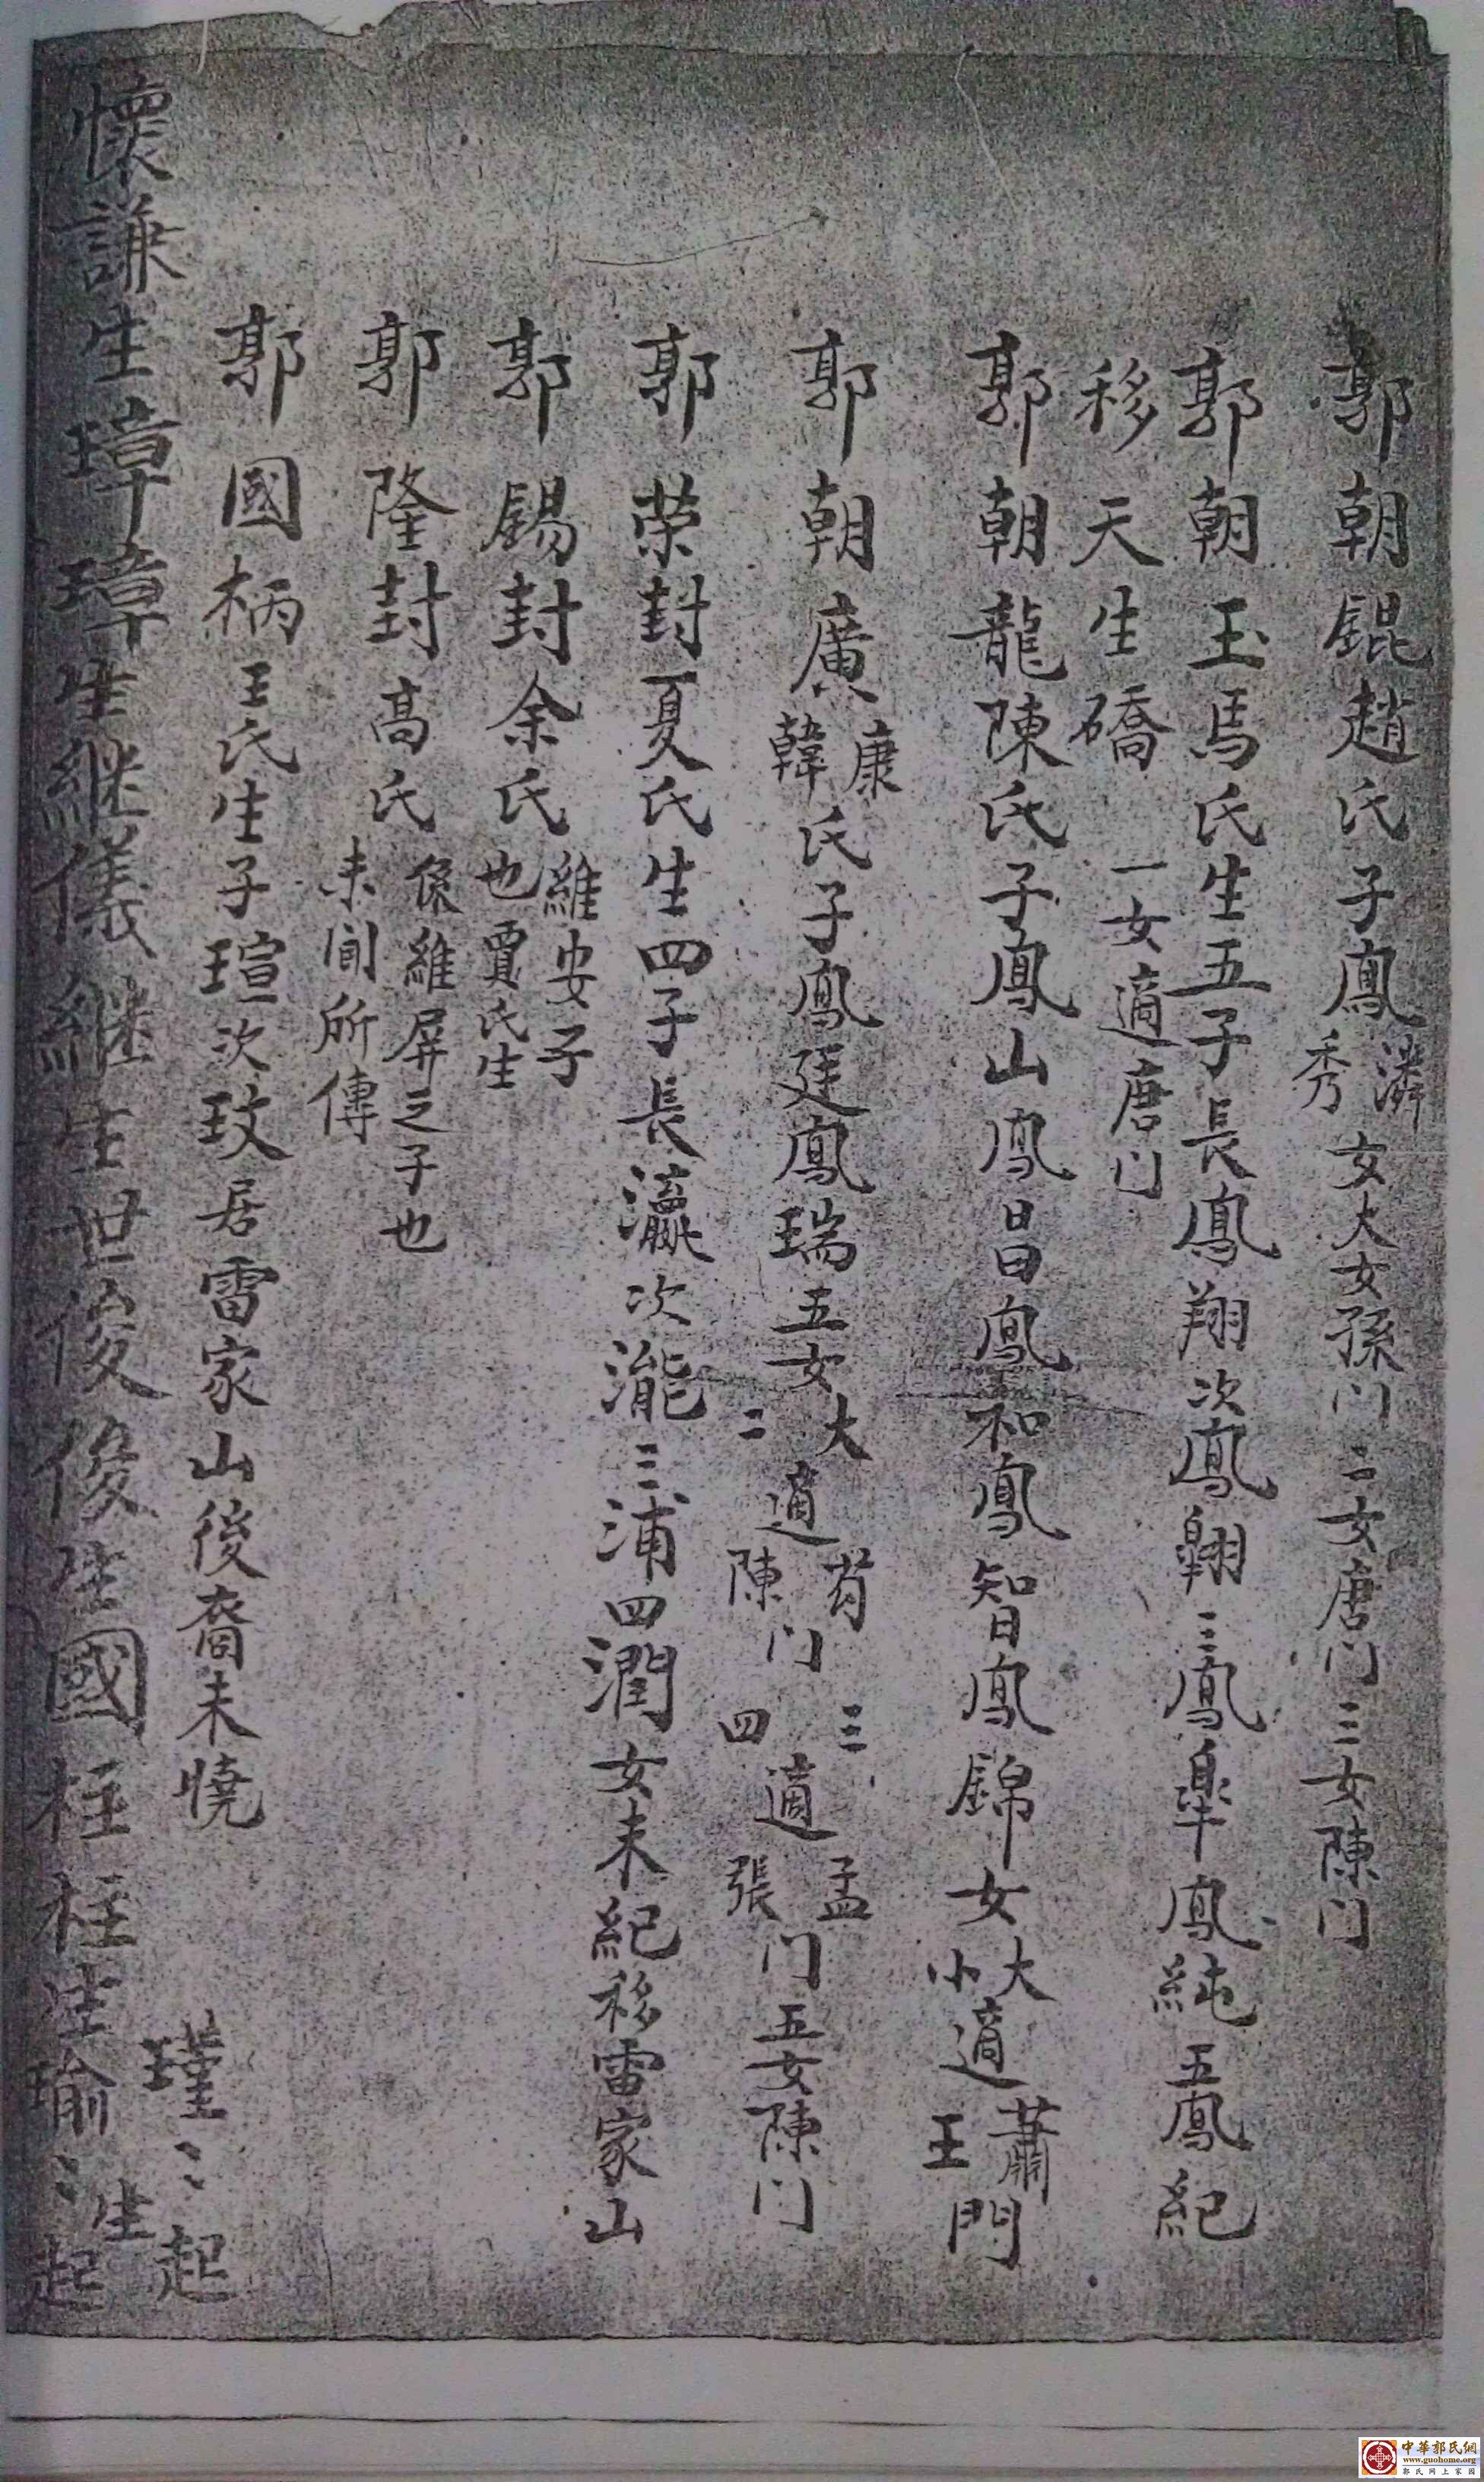 郭朝錕趙氏子鳳潾秀女大女孫门二女唐门三女陳门
郭朝玉馬氏生五子長鳳翔次鳳翱三鳳皐鳳純五鳳紀
移天生礄一女適唐门
郭朝龍陳氏子鳳山鳳昌鳳和鳳智鳳錦女大小適蕭王門
郭朝廣康韓氏子鳳廷鳳瑞五女大二適苟陳门三四適孟張门五女陳门
郭荣封夏氏生四子長瀛次瀧三浦四潤女未紀移雷家山
郭錫封余氏維安子也賈氏生
郭隆封高氏係維屏之子也未聞所傳
郭國柄王氏生子瑄次玟居雷家山後裔未憢
懷謙生璋璋生継儀継生世俊俊生國柱柱生瑜瑾〻〻生起起
中華郭氏網
www.guohome.org
郭氏网上家园